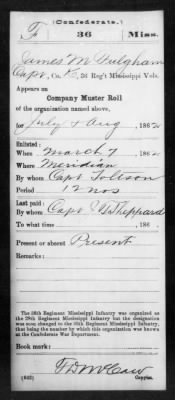 (Confederate.)
F 36 Miss.
James M Fulgham
Capt, Co. B, 36 Reg't Mississippi Vols.
Appears on
Company Muster Roll
of the organization named above,
for July & Aug, 1862
Enlisted:
When March 7, 1862
Where Meridian
By whom Capt Tolison
Period 12 mos
Last paid:
By whom Capt Sheppard
To what time , 186 .
Present or absent Present
Remarks:
The 36th Regiment Mississippi Infantry was organized as
the 29th Regiment Mississippi Infantry but the designation
was soon changed to the 36th Regiment Mississippi Infantry,
that being the number by which this organization was known
at the Confederate War Department.
Book mark:
(642) Copyist.